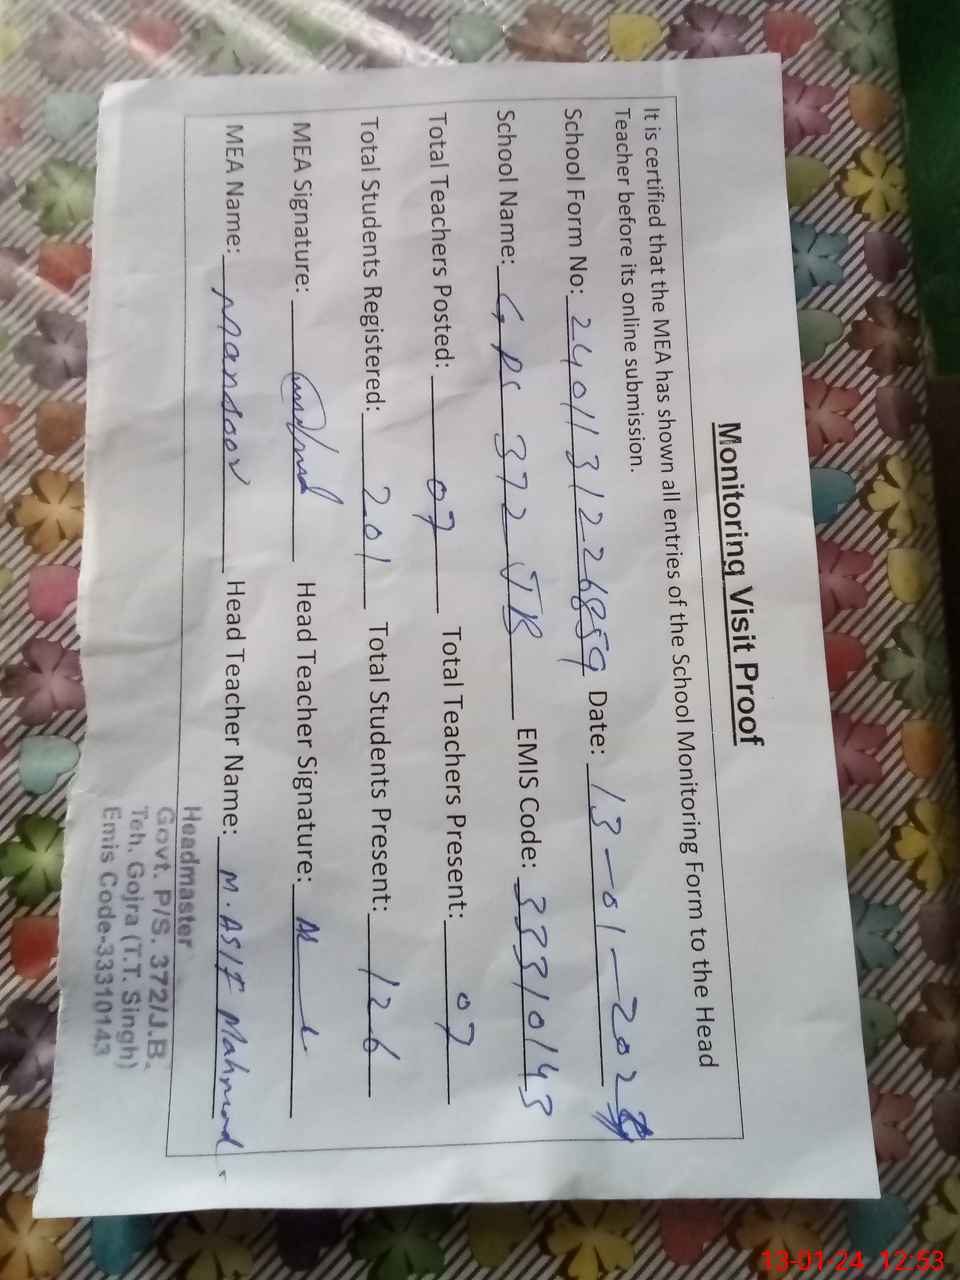 Monitoring Visit Proof
It is certified that the MEA has shown all entries of the School Monitoring Form to the Head
Teacher before its online submission.
School Form No: 2401131226859 Date: 13-01-2024
School Name: G.PS 372 JB EMIS Code: 33310143
Total Teachers Posted: 07 Total Teachers Present: 07
Total Students Registered: 201 Total Students Present: 126
MEA Signature: Head Teacher Signature:
MEA Name: Mansoor Head Teacher Name: M. ASIF Mahmood
Headmaster
Govt. P/S. 372/J.B.
Teh. Gojra (T.T. Singh)
Emis Code-33310143
13-01-24 12:53